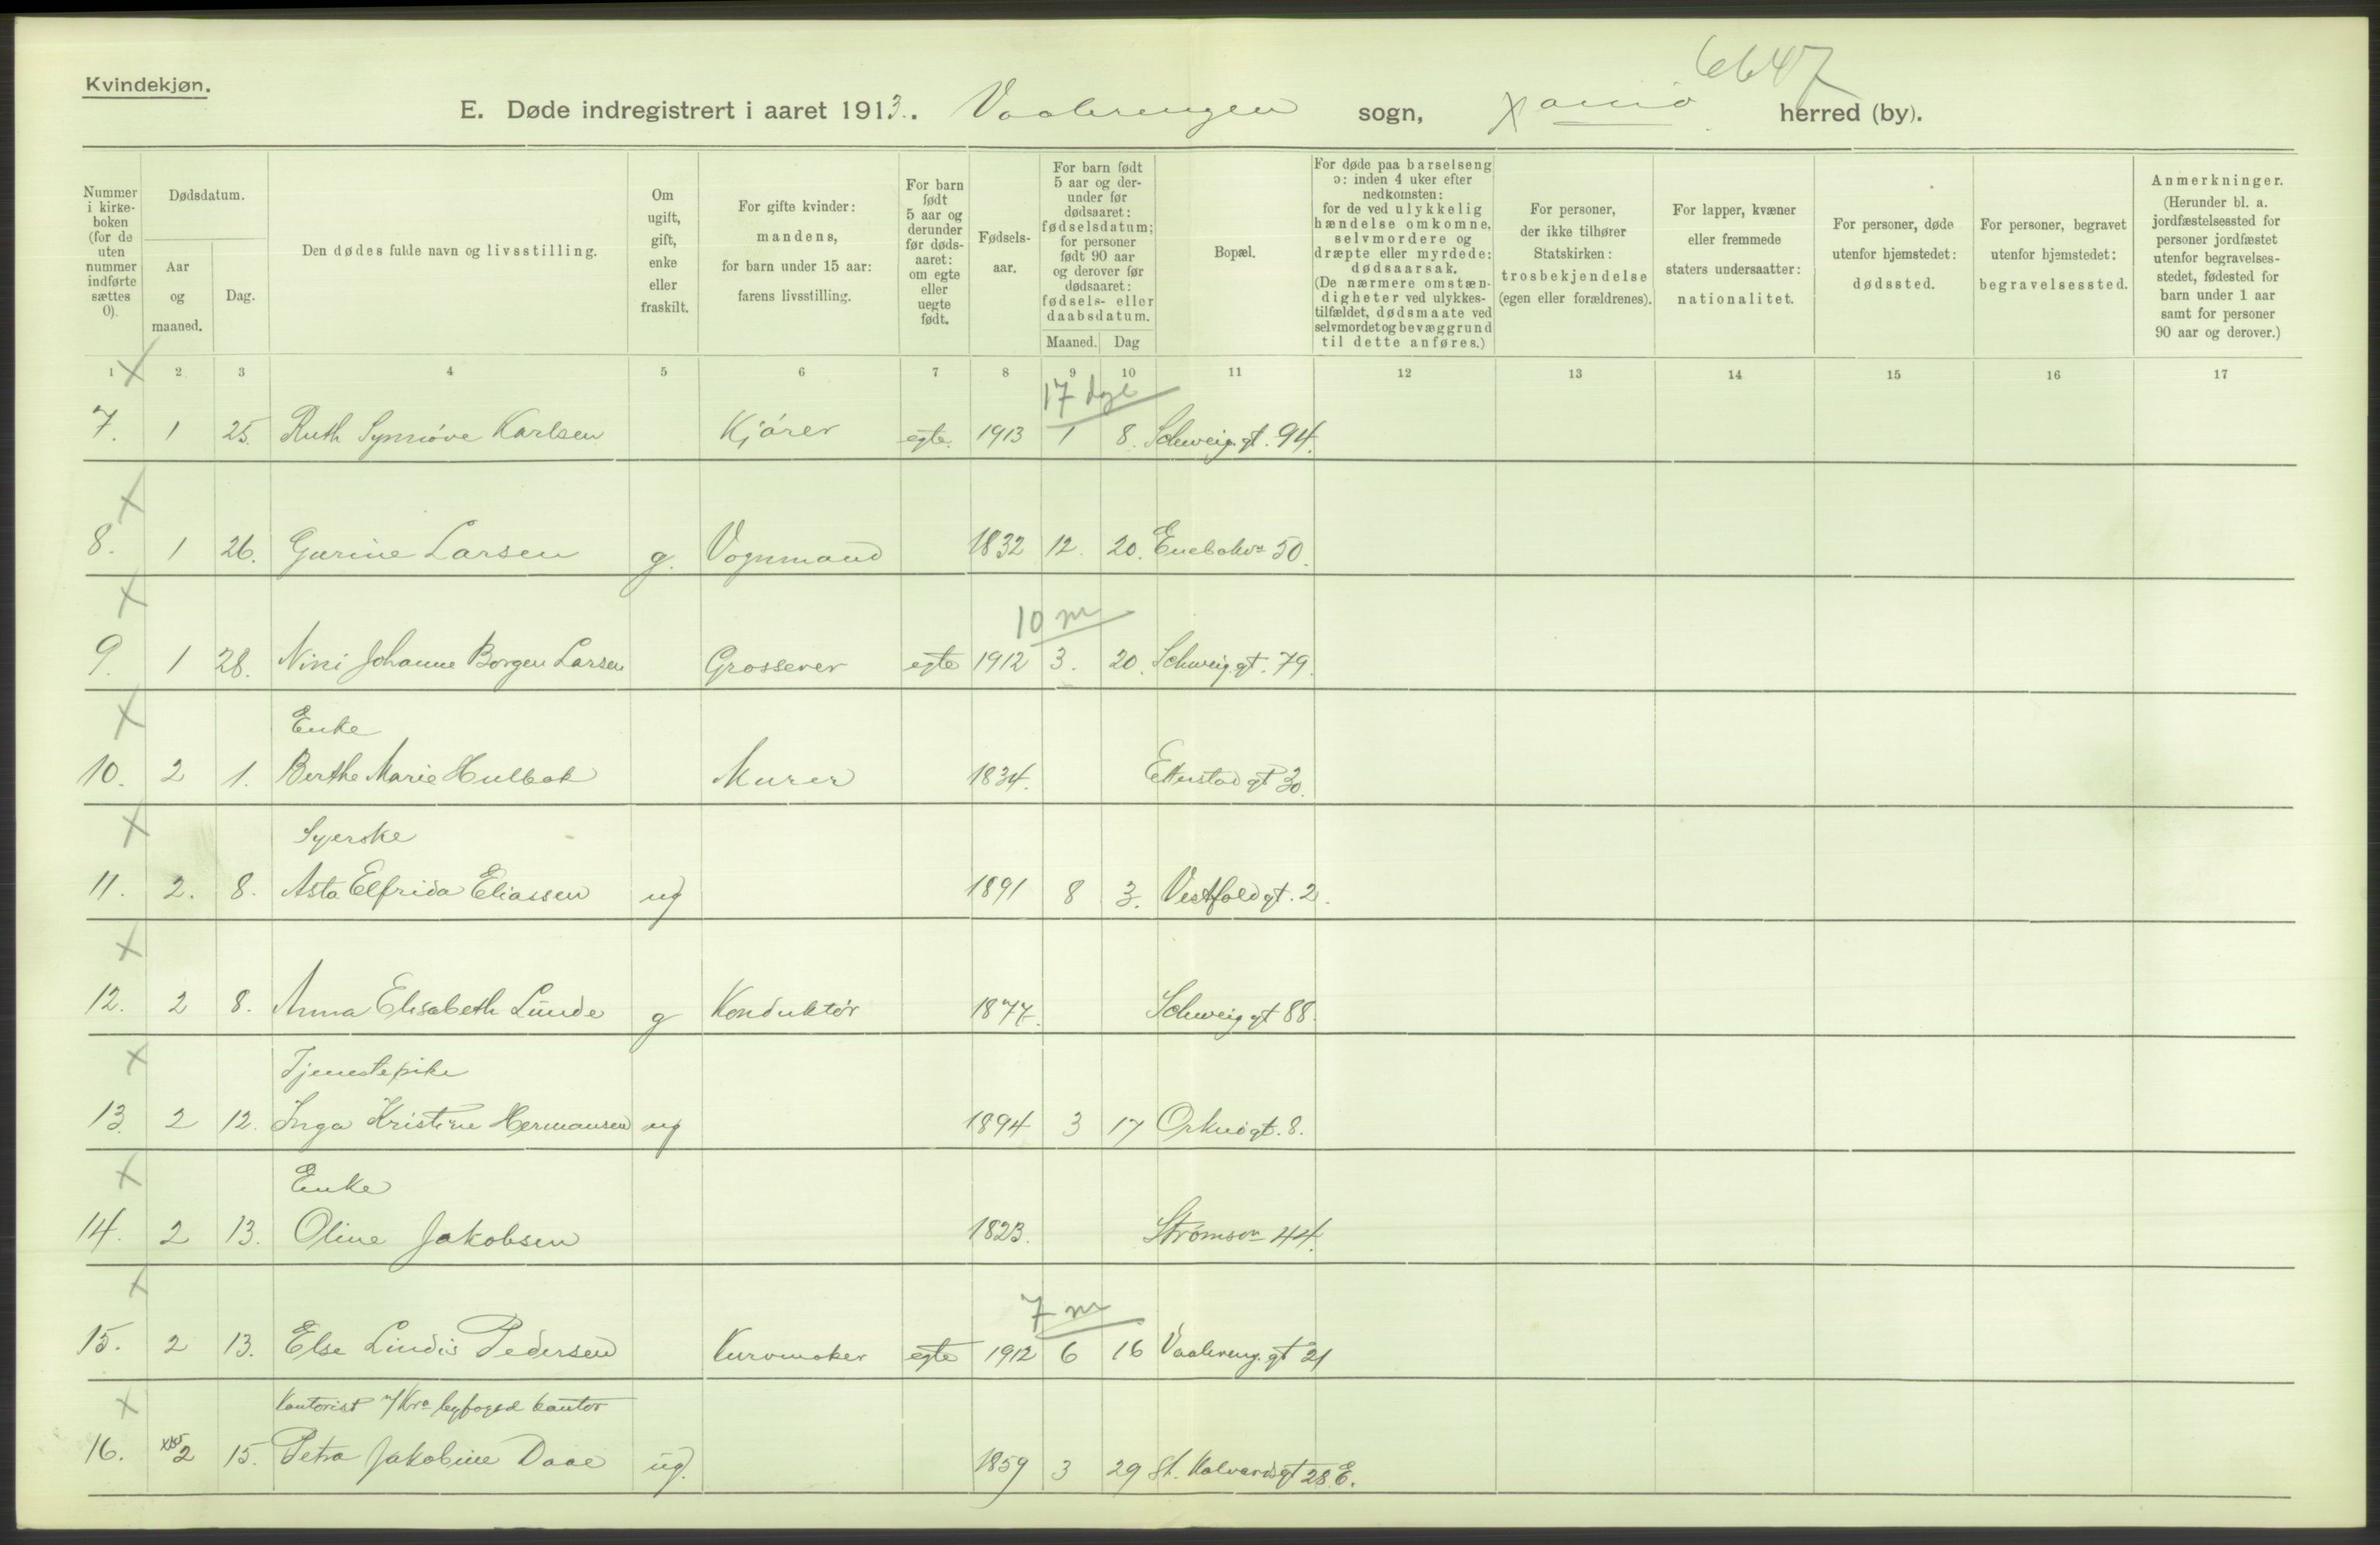 6647
Kvindekjøn.
E. Døde indregistrert i aaret 1913. Vaalerengen sogn, Xania herred (by).
Nummer i kirkeboken (for de uten nummer indførte sættes 0).
Dødsdatum.
Aar og maaned.
Dag.
Den dødes fulde navn og livsstilling.
Om ugift, gift, enke eller fraskilt.
For gifte kvinder: mandens, for barn under 15 aar: farens livsstilling.
For barn født 5 aar og derunder før dødsaaret: om egte eller uegte født.
Fødselsaar.
For barn født 5 aar og derunder før dødsaaret: fødselsdatum; for personer født 90 aar og derover før dødsaaret: fødsels- eller daabsdatum.
Maaned. Dag
Bopæl.
For døde paa barselseng ɔ: inden 4 uker efter nedkomsten: for de ved ulykkelig hændelse omkomne, selvmordere og dræpte eller myrdede: dødsaarsak. (De nærmere omstændigheter ved ulykkestilfældet, dødsmaate ved selvmordet og bevæggrund til dette anføres.)
For personer, der ikke tilhører Statskirken: trosbekjendelse (egen eller forældrenes).
For lapper, kvæner eller fremmede staters undersaatter: nationalitet.
For personer, døde utenfor hjemstedet: dødssted.
For personer, begravet utenfor hjemstedet: begravelsessted.
Anmerkninger. (Herunder bl. a. jordfæstelsessted for personer jordfæstet utenfor begravelsesstedet, fødested for barn under 1 aar samt for personer 90 aar og derover.)
1 2 3 4 5 6 7 8 9 10 11 12 13 14 15 16 17
17 dge
7. 1 25. Ruth Synnøve Karlsen Kjører egte. 1913 1 8. Schweig.gt. 94.
8. 1 26. Gurine Larsen g. Vognmand 1832 12. 20. Enebakvn 50.
10 m
9. 1 28. Nini Johanne Borgen Larsen Grosserer egte 1912 3. 20. Schweig.gt. 79.
Enke
10. 2 1. Berthe Marie Hulbak Murer 1834. Etterstad gt 30.
Syerske
11. 2. 8. Asta Elfrida Eliassen ug 1891 8 3. Vestfold gt. 2.
12. 2 8. Anna Elisabeth Lunde g Konduktør 1877. Schweig gt 88.
Tjenestepike
13. 2 12. Inga Kristine Hermansen ug 1894 3 17 Orknøgt. 8.
Enke
14. 2 13. Oline Jakobsen 1823. Strømsvn 44.
7 m
15. 2 13. Else Lindis Pedersen Kurvmaker egte 1912 6 16 Vaalereng. gt 21
Kontorist v/ Kra byfoged kontor
16. 2 15. Petra Jakobine Daae ug. 1859 3 29 St. Halvardsgt 28 E.